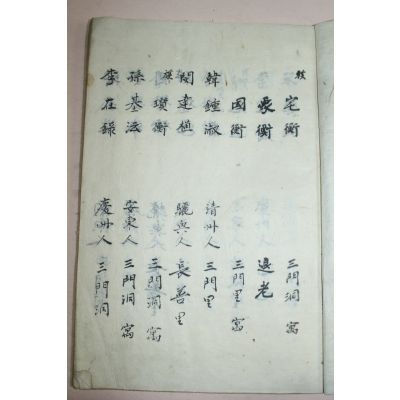 族 宅衡 三門洞 寓
象衡 退老
國衡 三門里 寓
韓鍾淑 清州人 三門里
閔建植 驪興人 長善里
族 瓚衡 三門洞 寓
孫基泓 安東人 三門洞 寓
李在錄 慶州人 三門洞